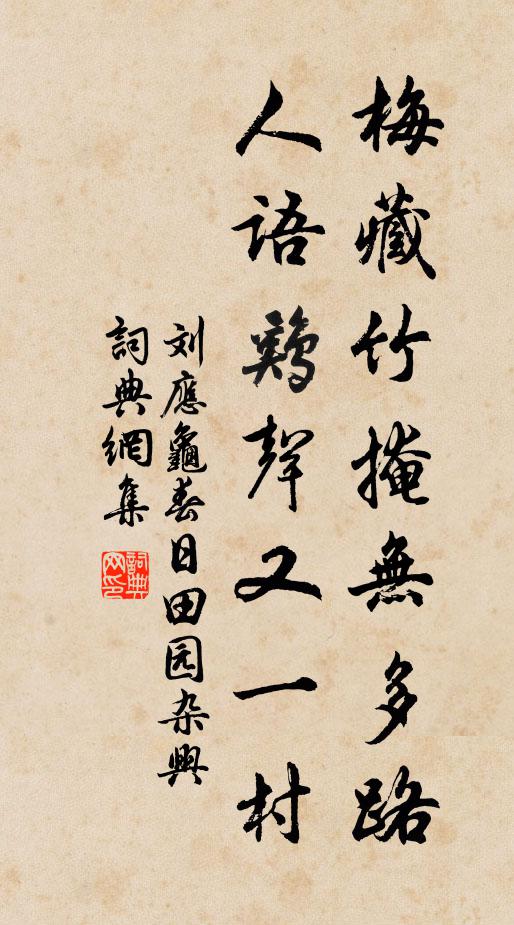 梅藏竹掩無多路
人語鷄聲又一村
刘應龜春日田园杂興
詞典網集
詞典網印